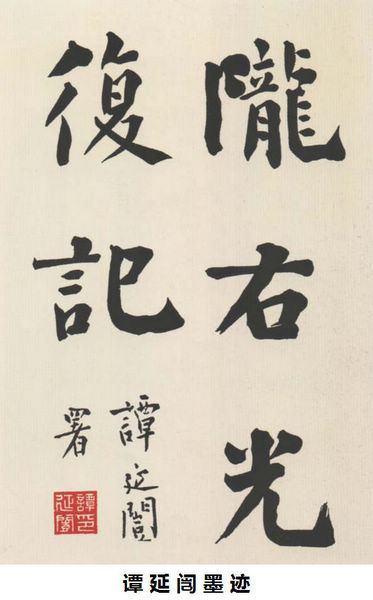 隴右光
復記
譚延闓
署
譚延闓印
谭延闿墨迹